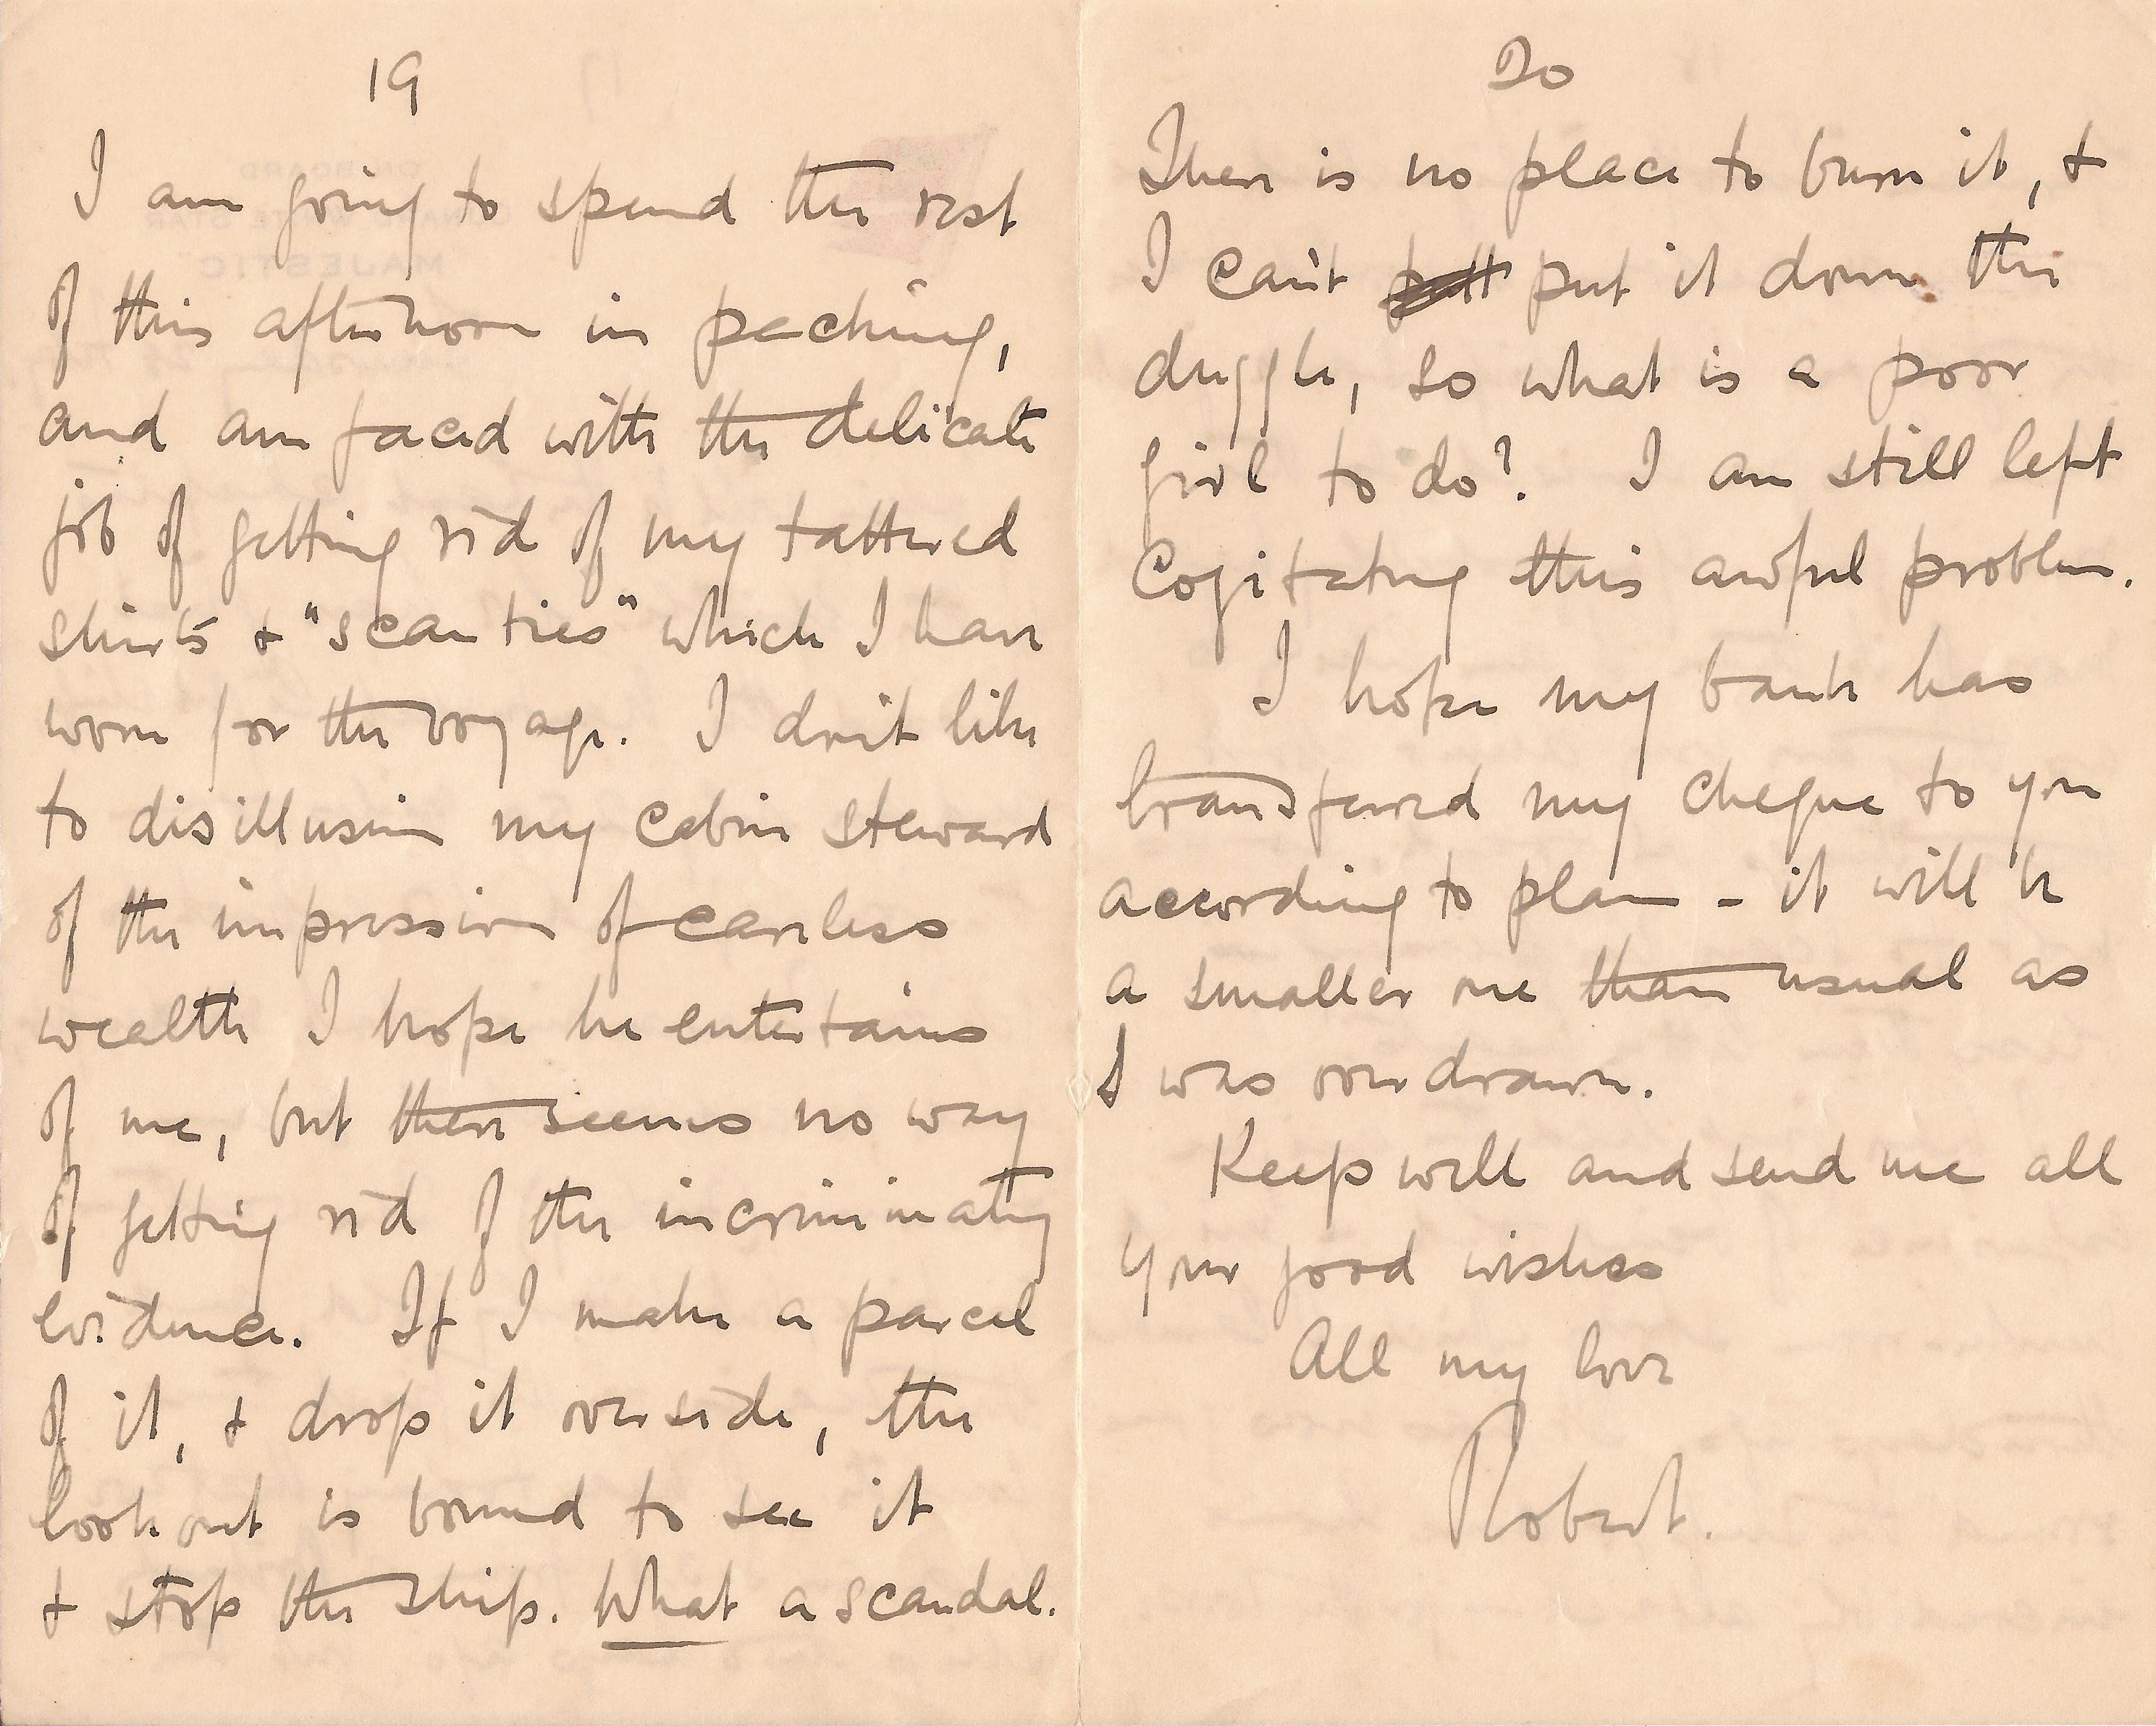 19
I am going to spend the rest
of this afternoon in packing,
and am faced with the delicate
job of getting rid of my tattered
shirts + "scanties" which I have
worn for the voyage. I don't like
to disillusion my cabin steward
of the impression of careless
wealth I hope he entertains
of me, but there seems no way
of getting rid of the incriminating
evidence. If I make a parcel
of it, + drop it overside, the
lookout is bound to see it
+ stop the ship. What a scandal.
20
There is no place to burn it, +
I can't put it down the
duggle, so what is a poor
girl to do? I am still left
cogitating this awful problem.
I hope my bank has
transferred my cheque to you
according to plan - it will be
a smaller one than usual as
I was overdrawn.
Keep well and send me all
your good wishes
All my love
Robert.
ON BOARD
MAJESTIC